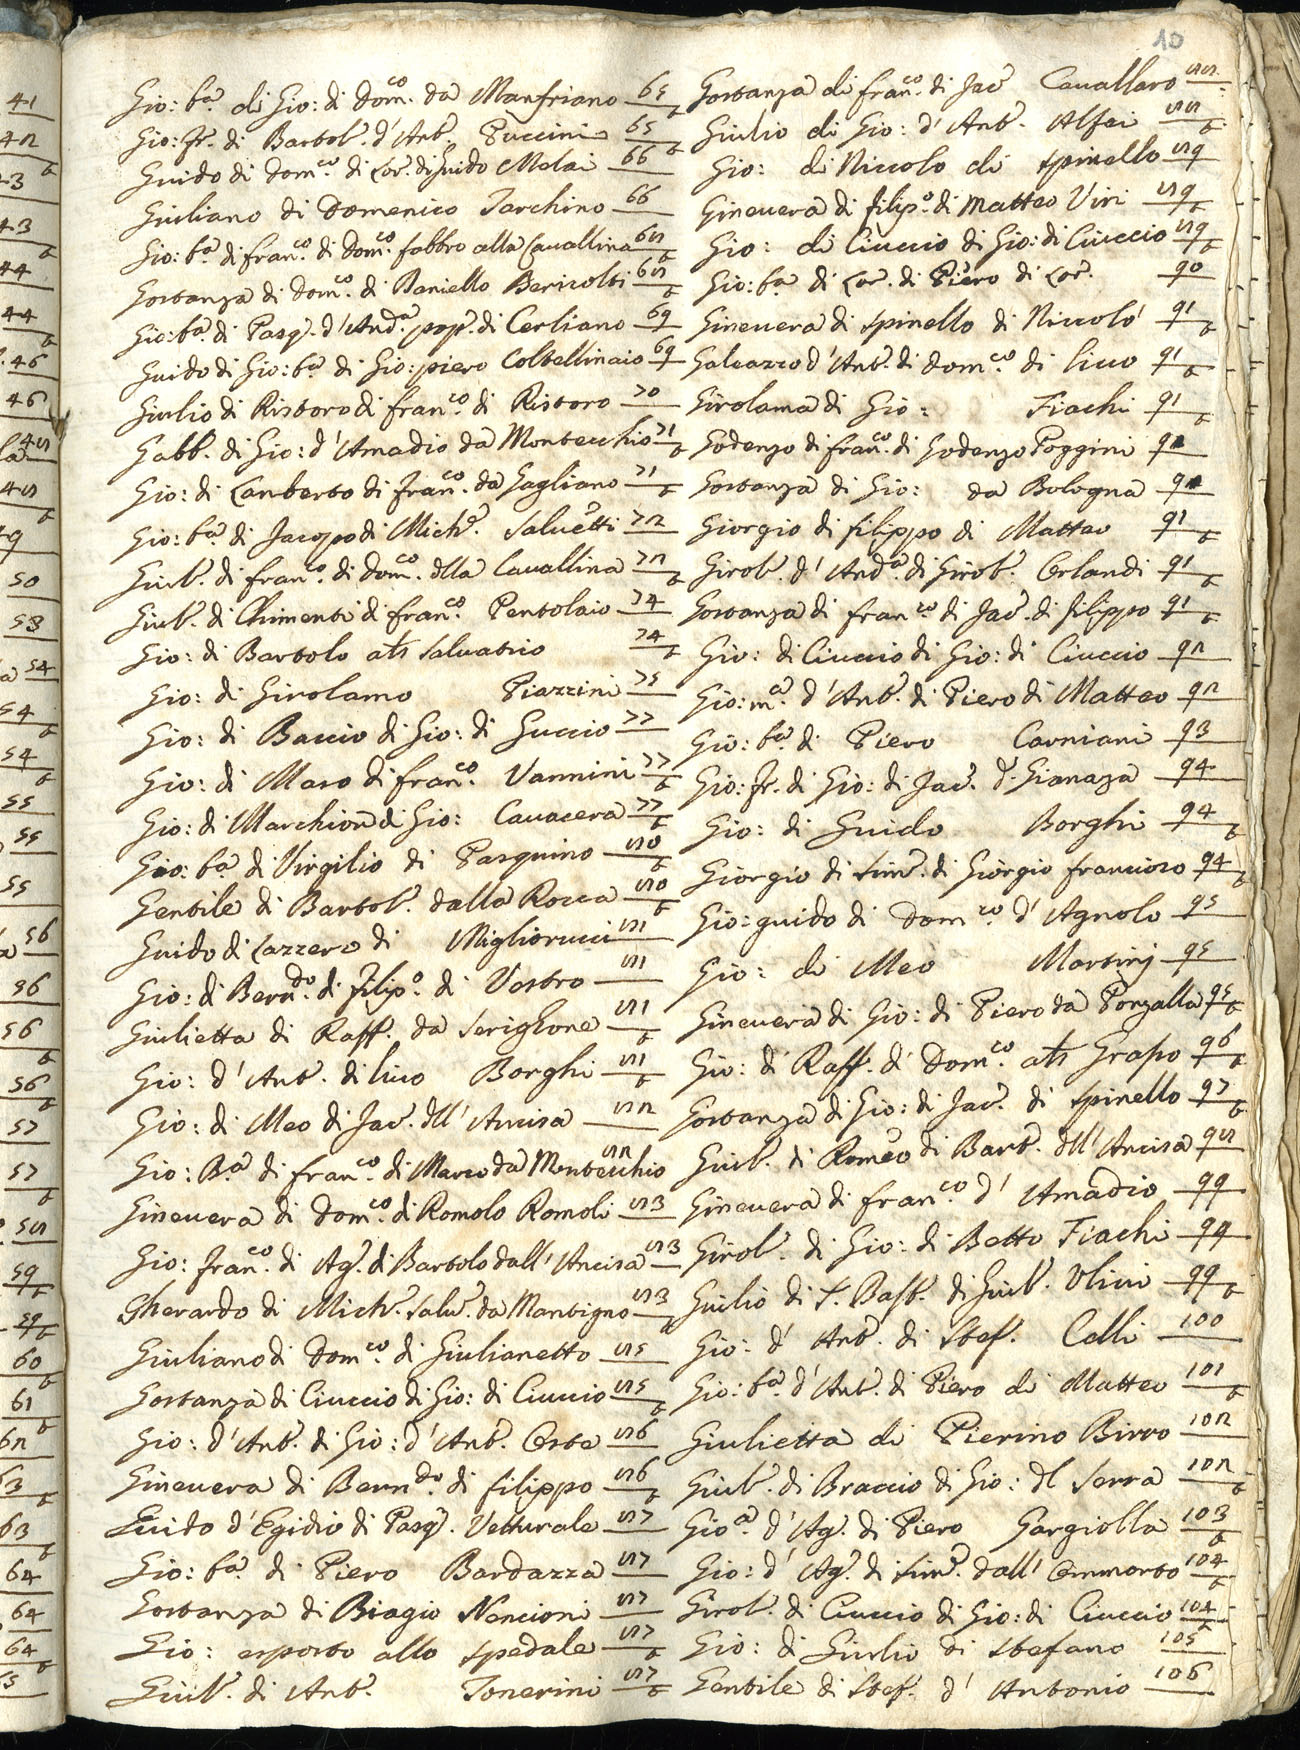 10
41
42
b
43
43
b
44
44
b
46
46
48
48
b
49
50
53
54
54
b
54
b
55
55
55
56
56
56
b
56
b
57
57
b
58
59
b
59
b
60
b
61
b
62
63
b
63
b
64
64
64
b
Gio: b.a di Gio: di Dom.co da Manfriano 65 b
Gio: fr. di Bartol. d'Ant. Puccini 65 b
Guido di Dom.co di Lor. di Guido Molai 66
Giuliano di Domenico Tarchino 66
Gio: b.a di Fran.co di Dom.co fabbro alla Cavallina 68 b
Gostanza di Dom.co di Daniello Bericolti 68 b
Gio: b.a di Pasq. d'And.a pop. di Cerliano 69
Guido di Gio: b.a di Gio: piero Coltellinaio 69
Giulio di Ristoro di Fran.co di Ristoro 70
Gabb. di Gio: d'Amadio da Montecchio 71
Gio: di Lamberto di Fran.co da Gagliano 71 b
Gio: b.a di Jacopo di Mich. Salvetti 72
Giul. di Fran.co di Dom.co dlla Cavallina 72 b
Giul. di Chimenti di Fran.co Pentolaio 74
Gio: di Bartolo als Salvatrio 74 b
Gio: di Girolamo Piazzini 75
Gio: di Baccio di Gio: di Guccio 77
Gio: di Maso di Fran.co Vannini 77 b
Gio: di Marchion di Gio: Cavacera 77 b
Gio: b.a di Virgilio di Pasquino 80 b
Gentile di Bartol. dalla Rocca 80 b
Guido di Lazzero di Migliorucci 81
Gio: di Bern.do di Filip.o di Vostro 81
Giulietta di Raff. da Serighone 81 b
Gio: d'Ant. di lico Borghi 81 b
Gio: di Meo di Jac. dll'Ancisa 82
Gio: B.a di Fran.co di Marco da Montecchio 82
Ginevera di Dom.co di Romolo Romoli 83
Gio: Fran.co di Ag. di Bartolo dall'Ancisa 83
Gherardo di Mich. Salv. da Mantigno 83 b
Giuliano di Dom.co di Giulianetto 85
Gostanza di Ciuccio di Gio: di Ciuccio 85 b
Gio: d'Ant. di Gio: d'Ant. Certa 86
Ginevera di Bern.do di Filippo 86 b
Guido d'Egidio di Pasq. Vetturale 87
Gio: b.a di Piero Bardazza 87
Gostanza di Biagio Nencioni 87
Gio: esposto allo Spedale 87 b
Giul. di Ant. Tonerini 87 b
Gostanza di Fran.co di Jac Cavallaro 88
Giulio di Gio: d'Ant. Alfei 88 b
Gio: di Niccolo di Spinello 89
Ginevera di Filip.o di Matteo Viri 89 b
Gio: di Ciuccio di Gio: di Ciuccio 89 b
Gio: b.a di Lor. di Piero di Lor. 90
Ginevera di Spinello di Niccolò 91 b
Galeazzo d'Ant. di Dom.co di lico 91 b
Girolama di Gio: Fiachi 91 b
Godenzo di Fran.co di Godenzo Poggini 92
Gostanza di Gio: da Bologna 92
Giorgio di Filippo di Matteo 91 b
Girol. d'And.a di Girol. Orlandi 91 b
Gostanza di Fran.co di Jac. di Filippo 91 b
Gio: di Ciuccio di Gio: di Ciuccio 92
Gio: m.a d'Ant. di Piero di Matteo 92
Gio: b.a di Piero Carniani 93
Gio: fr. di Gio: di Jac. d. Gianaza 94
Gio: di Guido Borghi 94 b
Giorgio di Sim. di Giorgio Francioso 94 b
Gio: guido di Dom.co d'Agnolo 95
Gio: di Meo Martinj 95
Ginevera di Gio: di Piero da Ponzalla 95 b
Gio: di Raff. di Dom.co als Graso 96 b
Gostanza di Gio: di Jac. di Spinello 97 b
Giul. di Romeo di Bart. dll'Ancisa 98
Ginevera di Fran.co d'Amadio 99
Girol. di Gio: di Betto Fiachi 99
Giulio di S. Bast. di Giul. Ulivi 99 b
Gio: d'Ant. di Stef. Calli 100
Gio: b.a d'Ant. di Piero di Matteo 101 b
Giulietta di Pierino Birro 102
Giul. di Braccio di Gio: dl Serra 102 b
Gio.a d'Ag. di Piero Gargiolla 103 b
Gio: d'Ag. di Sim. dall'Ommorto 104 b
Girol. di Ciuccio di Gio: di Ciuccio 104 b
Gio: di Giulio di Stefano 105
Gentile di Stef. d'Antonio 106